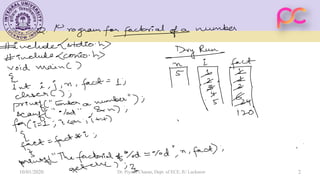 Q. Program for factorial of a number
#include<stdio.h>
#include<conio.h>
void main()
{
int i, n, fact = 1;
clrscr();
printf("Enter a number");
scanf("%d", &n);
for(i=1; i<=n; i++)
{
fact = fact*i;
}
printf("The factorial of %d = %d", n, fact);
getch(); }
Dry Run
n i fact
5 1 1
2 2
3 6
4 24
5 120
10/01/2020
Dr.
Hasan, Dept. of ECE, IU Lucknow
2